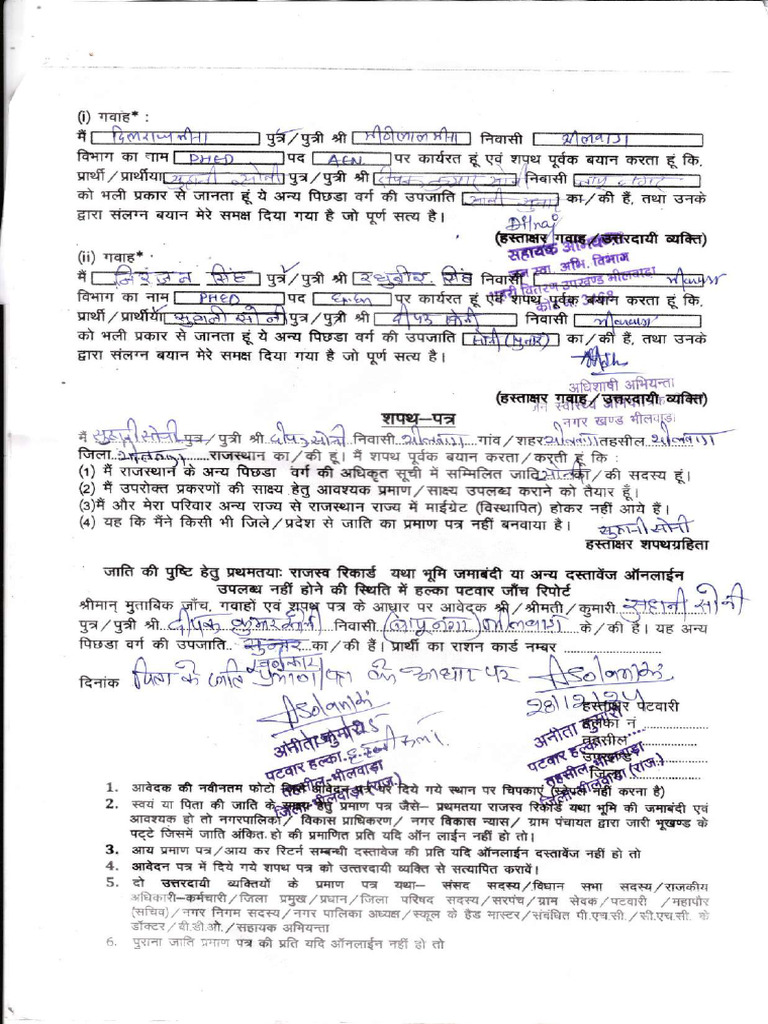 (i) गवाह* :
मैं दिलराज मीना पुत्र/पुत्री श्री मीठालाल मीना निवासी भीलवाडा
विभाग का नाम PHED पद AEN. पर कार्यरत हूं एवं शपथ पूर्वक बयान करता हूं कि,
प्रार्थी/प्रार्थीया सुहानी सोनी पुत्र/पुत्री श्री दीपक कुमार सोनी निवासी बापू नगर
को भली प्रकार से जानता हूं ये अन्य पिछडा वर्ग की उपजाति का/की हैं, तथा उनके
द्वारा संलग्न बयान मेरे समक्ष दिया गया है जो पूर्ण सत्य है।
Dilraj
(हस्ताक्षर गवाह/उत्तरदायी व्यक्ति)
सहायक अभियन्ता
जन स्वा. अभि. विभाग
शहरी वितरण उपखण्ड भीलवाडा
(ii) गवाह* :
मैं निरंजन सिंह पुत्र/पुत्री श्री रघुवीर सिंह निवासी भीलवाडा
विभाग का नाम PHED पद ExEn पर कार्यरत हूं एवं शपथ पूर्वक बयान करता हूं कि,
प्रार्थी/प्रार्थीया सुहानी सोनी पुत्र/पुत्री श्री दीपक सोनी निवासी भीलवाडा
को भली प्रकार से जानता हूं ये अन्य पिछडा वर्ग की उपजाति सोनी (सुनार) का/की हैं, तथा उनके
द्वारा संलग्न बयान मेरे समक्ष दिया गया है जो पूर्ण सत्य है।
अधिशाषी अभियन्ता
(हस्ताक्षर गवाह/उत्तरदायी व्यक्ति)
जन स्वास्थ्य अभियांत्रिकी
नगर खण्ड भीलवाड़ा
शपथ-पत्र
मैं सुहानी सोनी पुत्र/पुत्री श्री दीपक सोनी निवासी भीलवाडा गांव/शहर भीलवाडा तहसील भीलवाडा
जिला भीलवाडा राजस्थान का/की हूं। मैं शपथ पूर्वक बयान करता/करती हूं कि :
(1) मैं राजस्थान के अन्य पिछडा वर्ग की अधिकृत सूची में सम्मिलित जाति सोनी का/की सदस्य हूं।
(2) मैं उपरोक्त प्रकरणों की साक्ष्य हेतु आवश्यक प्रमाण/साक्ष्य उपलब्ध कराने को तैयार हूँ।
(3)मैं और मेरा परिवार अन्य राज्य से राजस्थान राज्य में माईग्रेट (विस्थापित) होकर नहीं आये हैं।
(4) यह कि मैंने किसी भी जिले/प्रदेश से जाति का प्रमाण पत्र नहीं बनवाया है।
सुहानी सोनी
हस्ताक्षर शपथग्रहिता
जाति की पुष्टि हेतु प्रथमतयाः राजस्व रिकार्ड यथा भूमि जमाबंदी या अन्य दस्तावेंज ऑनलाईन
उपलब्ध नहीं होने की स्थिति में हल्का पटवार जाँच रिपोर्ट
श्रीमान् मुताबिक जाँच, गवाहों एवं शपथ पत्र के आधार पर आवेदक श्री/श्रीमती/कुमारी सुहानी सोनी
पुत्र/पुत्री श्री दीपक कुमार सोनी निवासी (बापूनगर) भीलवाडा के/की है। यह अन्य
पिछडा वर्ग की उपजाति सुनार का/की हैं। प्रार्थी का राशन कार्ड नम्बर
स्वर्णकार
दिनांक पिता के जाति प्रमाण पत्र के आधार पर ASolanki
ASolanki 28/12/24
हस्ताक्षर पटवारी
हल्का नं
तहसील
उपखण्ड
जिला
अनीता कुमारी
पटवार हल्का
तहसील-भीलवाड़ा
जिला-भीलवाड़ा (राज.)
अनीता कुमारी
पटवार हल्का
तहसील-भीलवाड़ा
जिला-भीलवाड़ा (राज.)
1. आवेदक की नवीनतम फोटो आवेदन पत्र पर दिये गये स्थान पर चिपकाएं (स्टेपल नहीं करना है)
2. स्वयं या पिता की जाति के सबूत हेतु प्रमाण पत्र जैसे- प्रथमतया राजस्व रिकार्ड यथा भूमि की जमाबंदी एवं
आवश्यक हो तो नगरपालिका/ विकास प्राधिकरण/ नगर विकास न्यास/ ग्राम पंचायत द्वारा जारी भूखण्ड के
पट्टे जिसमें जाति अंकित हो की प्रमाणित प्रति यदि ऑन लाईन नहीं हो तो।
3. आय प्रमाण पत्र/आय कर रिटर्न सम्बन्धी दस्तावेज की प्रति यदि ऑनलाईन दस्तावेंज नहीं हो तो
4. आवेदन पत्र में दिये गये शपथ पत्र को उत्तरदायी व्यक्ति से सत्यापित करावें।
5. दो उत्तरदायी व्यक्तियों के प्रमाण पत्र यथा- संसद सदस्य/विधान सभा सदस्य/राजकीय
अधिकारी-कर्मचारी/जिला प्रमुख/प्रधान/जिला परिषद सदस्य/सरपंच/ग्राम सेवक/पटवारी /महापौर
(सचिव)/नगर निगम सदस्य/नगर पालिका अध्यक्ष/स्कूल के हैड मास्टर/संबंधित पी.एच.सी./सी.एच.सी. के
डॉक्टर/बी.डी.ओ./सहायक अभियन्ता
6. पुराना जाति प्रमाण पत्र की प्रति यदि ऑनलाईन नहीं हो तो